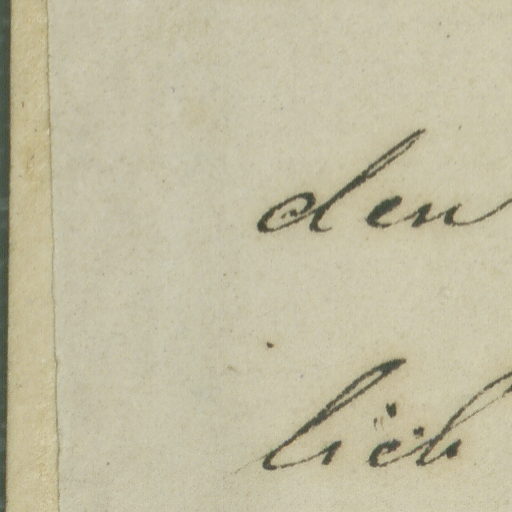 den
lich